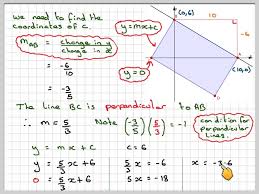 we need to find the
coordinates of C.
(0,6)
10
y=mx+c
-6
m_AB = change in y / change in x
= -6/10
y=0
(10,0)
= -3/5
The line BC is perpendicular to AB
∴ m = 5/3 Note (-3/5)(5/3) = -1
condition for perpendicular lines
y = mx + c c = 6
y = 5/3 x + 6 5/3 x = -6 x = -3.6
0 = 5/3 x + 6 5x = -18